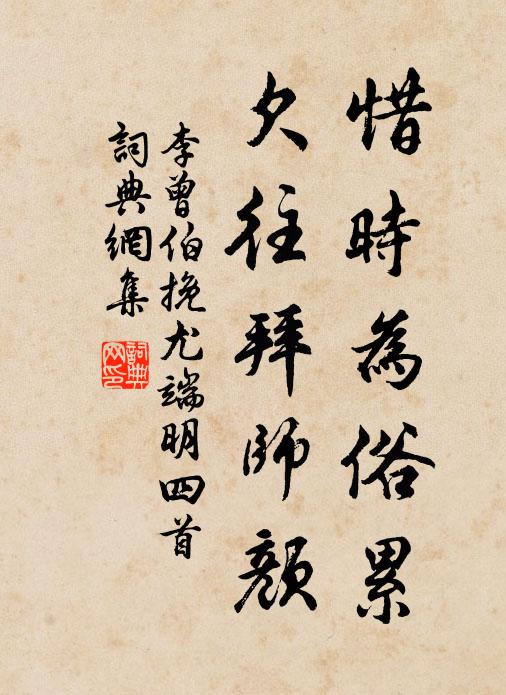 惜時為俗累
欠往拜師顏
李曾伯挽尤端明四首
詞典網集
詞典
网印